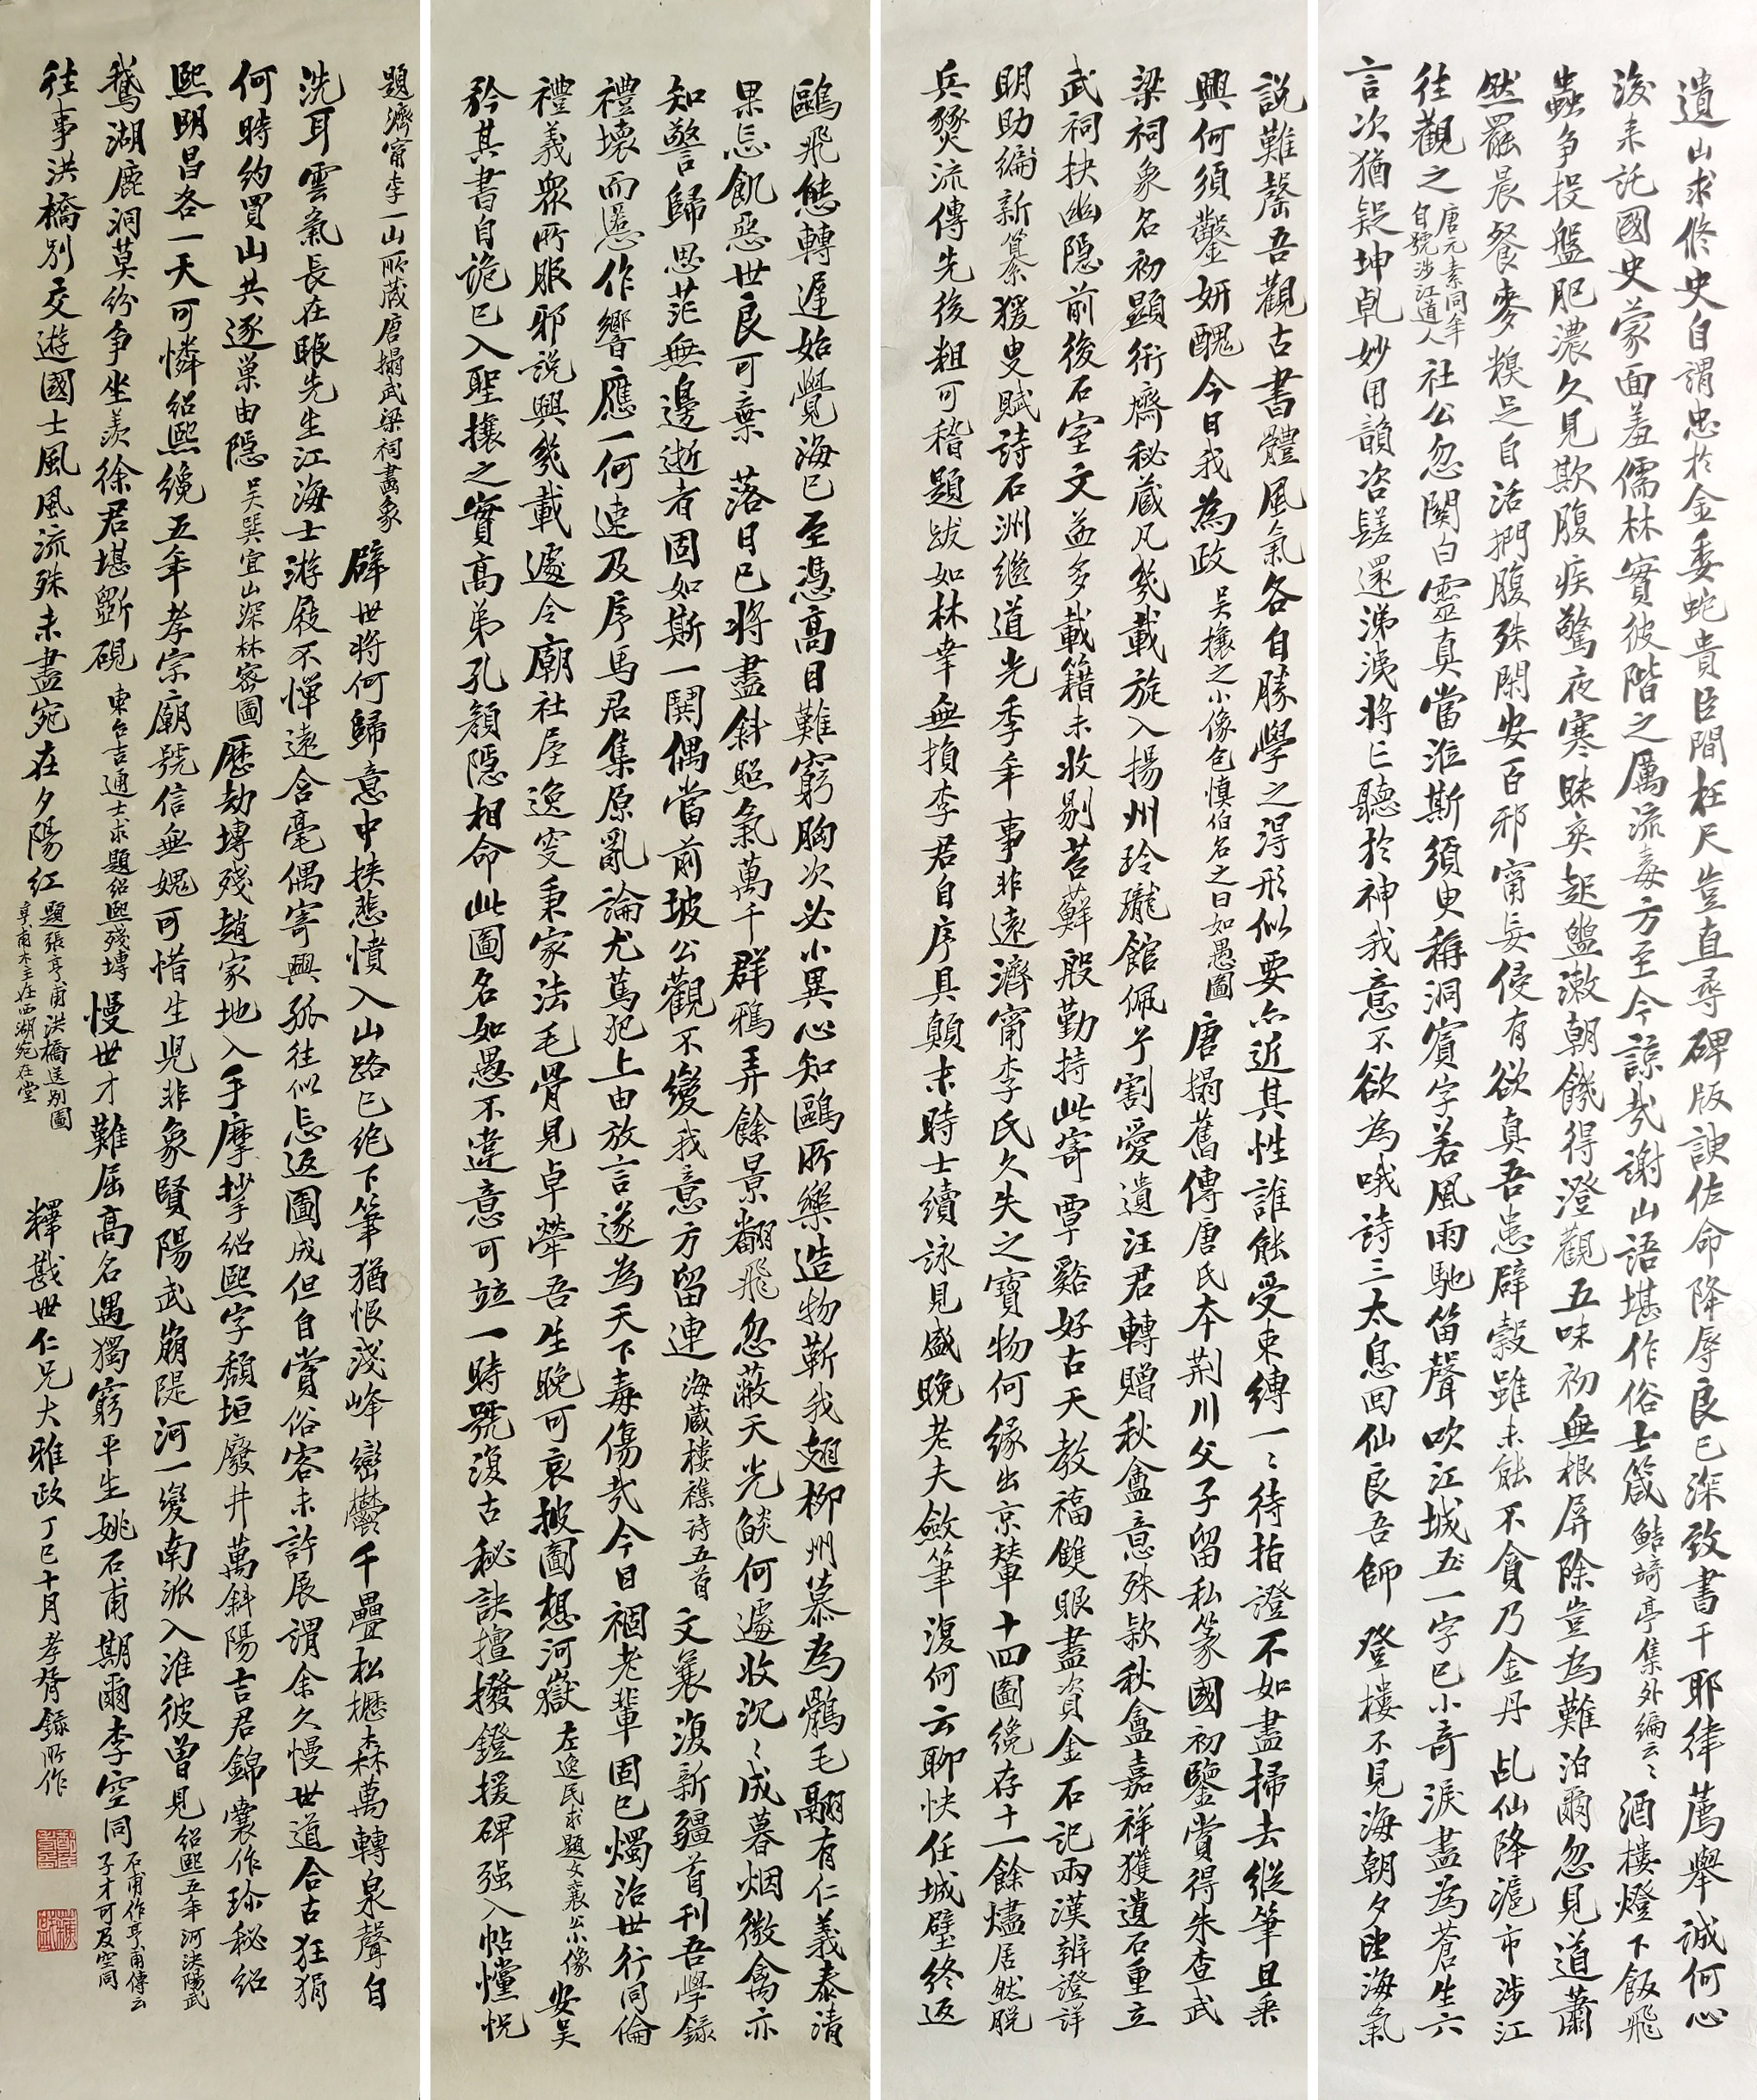 遺山求修史自謂忠於金委蛇貴臣間枉尺豈直尋碑版諛佐命降辱良已深致書干耶律薦舉誠何心
後來託國史蒙面羞儒林實彼階之厲流毒方至今諒哉謝山語堪作俗士箴 鮚埼亭集外編云〻 酒樓燈下飯飛
蟲争投盤肥濃久見欺腹疾驚夜寒昧爽起盥漱朝饑得澄觀五味初無根屏除豈為難泊爾忽見道蕭
然罷晨餐麥糗足自活捫腹殊閑安百邪甯妄侵有欲真吾患辟穀雖未能不貪乃金丹 乩仙降滬市涉江
往觀之 唐元素同年自號涉江道人 社公忽關白靈真當涖斯須臾稱洞賓字若風雨馳笛聲吹江城五一字已小奇淚盡為蒼生六
言次猶疑坤乹妙用韻咨嗟還涕洟將亡聽於神我意不欲為哦詩三太息回仙良吾師 登樓不見海朝夕望海氣
說難罄吾觀古書體風氣各自勝學之得形似要亦近其性誰能受束縛一〻待指澄不如盡掃去縱筆且乗
興何須鑿妍醜今日我為政 吴攘之小像包慎伯名之曰如愚圖 唐搨舊傳唐氏本荆川父子留私篆國初鑒賞得朱查武
梁祠象名初顯衎齋秘蔵凡幾載旋入揚州玲瓏館佩兮割愛遺汪君轉贈秋盦意殊款秋盦嘉祥獲遺石重立
武祠抉幽隱前後石室文益多載籍未收剔苔蘚殷勤持此寄覃谿好古天教福雙眼盡資金石記兩漢辨證詳
明助編新纂猨叟賦詩石洲繼道光季年事非遠濟甯李氏久失之寶物何緣出京輦十四圖纔存十一餘燼居然脱
兵燹流傳先後粗可稽題跋如林幸無損李君自序具顛末時士續詠見盛晚老夫斂筆復何云聊快任城璧終返
鷗飛態轉遲始覺海已至憑高目難窮胸次必小異心知鷗所樂造物靳我翅柳州慕為鶻毛翮有仁義泰清
果忘飢惡世良可棄 落日已將盡斜照氣萬千群鴉弄餘景翻飛忽蔽天光餤何遽收沉〻成暮烟微禽亦
知警歸思茫無邊逝者固如斯一闋偶當前坡公觀不變我意方留連 海蔵樓襍詩五首 文襄復新疆首刊吾學録
禮壞而慝作響應一何速及序馬君集原亂論尤篤犯上由放言遂為天下毒傷哉今日禍老輩固已燭治世行同倫
禮義衆所服邪說興幾載遽令廟社屋逸叟秉家法毛骨見卓犖吾生晚可哀披圖想河嶽 左逸民求題文襄公小像 安吴
矜其書自詭已入聖攘之實高弟孔顔隱相命此圖名如愚不違意可竝一時號復古秘訣擅撥鐙援碑强入帖懂怳
題濟甯李一山所蔵唐搨武梁祠畫象 辟世將何歸意中挾悲憤入山路已绝下筆猶恨淺峰巒鬱千疊松櫪森萬轉泉聲自
洗耳雲氣長在眼先生江海士游屐不憚遠含毫偶寄興孤往似忘返圖成但自賞俗客未許展謂余久慢世道合古狂狷
何時約買山共逐巢由隱 吴巽宜山深林密圖 歷劫塼殘趙家地入手摩挲紹熙字頹垣廢井萬斜陽吉君錦囊作珍秘紹
熙明昌各一天可憐紹熙纔五年孝宗廟號信無媿可惜生兒非象賢陽武崩隄河一變南派入淮彼曾見 紹熙五年河決陽武
鵝湖鹿洞莫紛争坐羨徐君堪斲硯 東台吉通士求題紹熙殘塼 慢世才難屈高名遇獨窮平生姚石甫期爾李空同 石甫作亨甫傳云子才可及空同
往事洪橋别交遊國士風風流殊未盡宛在夕陽红 題張亨甫洪橋送别圖亨甫木主在西湖宛在堂
釋戡世仁兄大雅政 丁巳十月 孝胥録所作